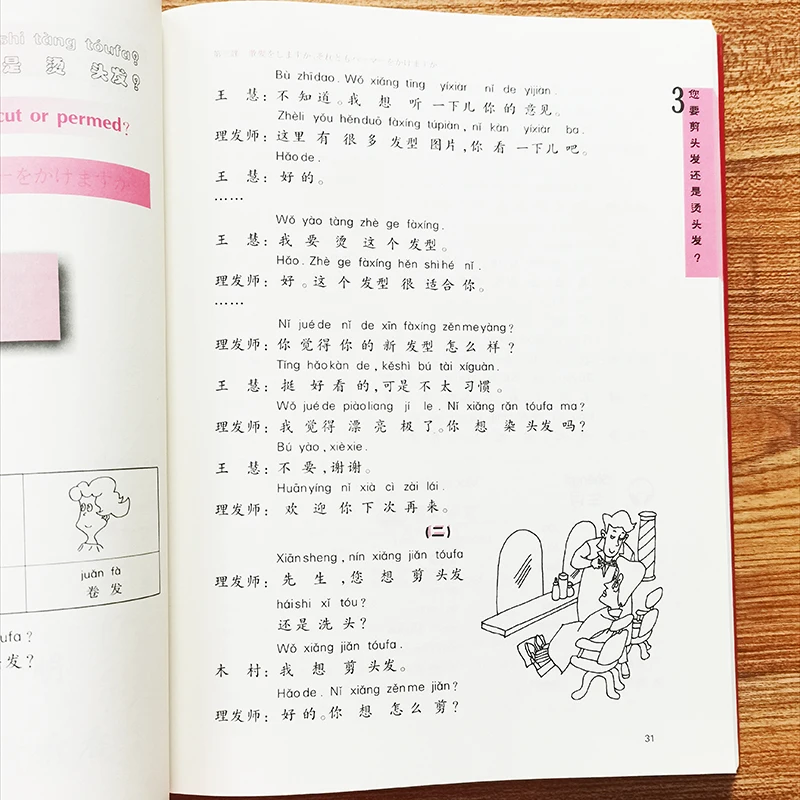 shì tàng tóufa?
是 烫 头发?
cut or permed?
ーをかけますか
juǎn fà
卷 发
oufa?
发?
Bù zhīdao. Wǒ xiǎng tīng yíxiàr nǐ de yìjiàn.
王 慧: 不 知道。我 想 听 一下儿 你 的 意见。
Zhèli yǒu hěnduō fàxíng túpiàn, nǐ kàn yíxiàr ba.
理发师: 这里 有 很 多 发型 图片,你 看 一下儿 吧。
Hǎode.
王 慧: 好 的。
……
Wǒ yào tàng zhè ge fàxíng.
王 慧: 我 要 烫 这 个 发型。
Hǎo. Zhè ge fàxíng hěn shìhé nǐ.
理发师: 好。这 个 发型 很 适合 你。
……
Nǐ juéde nǐ de xīn fàxíng zěnmeyàng?
理发师: 你 觉得 你 的 新 发型 怎么 样?
Tǐng hǎokàn de, kěshì bú tài xíguàn.
王 慧: 挺 好看 的,可是 不 太 习惯。
Wǒ juéde piàoliang jí le. Nǐ xiǎng rǎn tóufa ma?
理发师: 我 觉得 漂 亮 极 了。你 想 染 头发 吗?
Bú yào, xièxie.
王 慧: 不 要,谢谢。
Huānyíng nǐ xià cì zài lái.
理发师: 欢 迎 你 下 次 再 来。
(二)
Xiānsheng, nín xiǎng jiǎn tóufa
理发师: 先 生,您 想 剪 头发
háishi xǐ tóu?
还是 洗 头?
Wǒ xiǎng jiǎn tóufa.
木 村: 我 想 剪 头发。
Hǎode. Nǐ xiǎng zěnme jiǎn?
理发师: 好 的。你 想 怎么 剪?
31
3
您要剪头发还是烫头发?